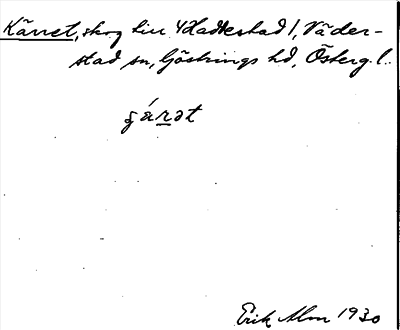 Kärret, skog till 4 Hadbestad 1, Väder-
stad sn, Göstrings hd, Österg. l.
ɕä́rət
Erik Alm 1930